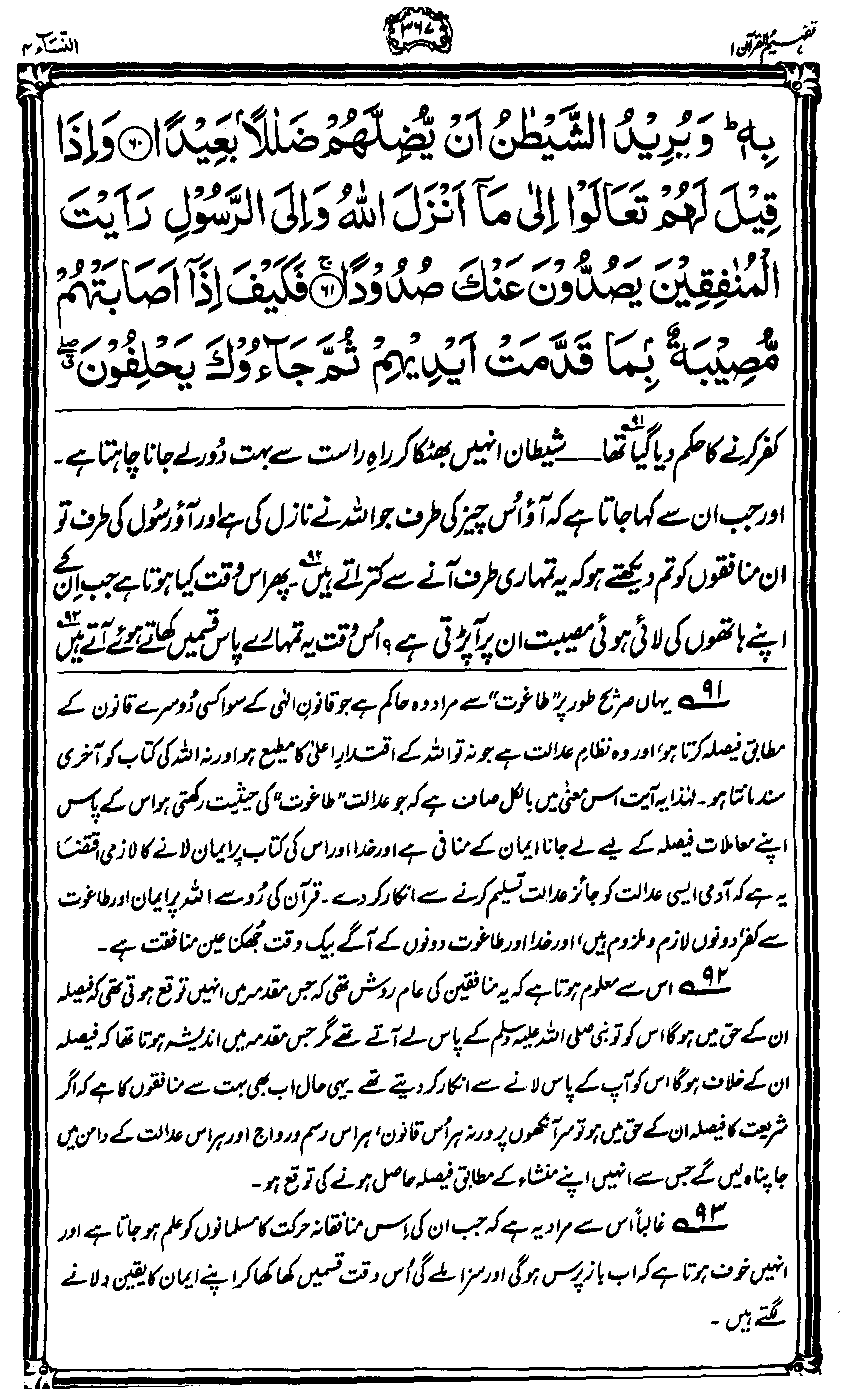 تفہیم القرآن ۱
۳۶۷
النساء ۴
بِهٖ ؕ وَيُرِيْدُ الشَّيْطٰنُ اَنْ يُّضِلَّهُمْ ضَلٰلًۢا بَعِيْدًا ﴿۶۰﴾ وَاِذَا
قِيْلَ لَهُمْ تَعَالَوْا اِلٰى مَاۤ اَنْزَلَ اللّٰهُ وَاِلَى الرَّسُوْلِ رَاَيْتَ
الْمُنٰفِقِيْنَ يَصُدُّوْنَ عَنْكَ صُدُوْدًا ۚ ﴿۶۱﴾ فَكَيْفَ اِذَاۤ اَصَابَتْهُمْ
مُّصِيْبَةٌۢ بِمَا قَدَّمَتْ اَيْدِيْهِمْ ثُمَّ جَآءُوْكَ يَحْلِفُوْنَ ۖۗ
کفر کرنے کا حکم دیا گیا تھا۹۱ـــــ شیطان انہیں بھٹکا کر راہِ راست سے بہت دُور لے جانا چاہتا ہے۔
اور جب ان سے کہا جاتا ہے کہ آؤ اُس چیز کی طرف جو اللہ نے نازل کی ہے اور آؤ رسُول کی طرف تو
ان منافقوں کو تم دیکھتے ہو کہ یہ تمہاری طرف آنے سے کتراتے ہیں۹۲۔ پھر اس وقت کیا ہوتا ہے جب اِن کے
اپنے ہاتھوں کی لائی ہوئی مصیبت ان پر آپڑتی ہے؟ اُس وقت یہ تمہارے پاس قسمیں کھاتے ہوئے آتے ہیں۹۳
۹۱ یہاں صریح طور پر "طاغوت" سے مراد وہ حاکم ہے جو قانونِ الٰہی کے سوا کسی دُوسرے قانون کے
مطابق فیصلہ کرتا ہو، اور وہ نظامِ عدالت ہے جو نہ تو اللہ کے اقتدارِ اعلیٰ کا مطیع ہو اور نہ اللہ کی کتاب کو آخری
سند مانتا ہو۔ لہٰذا یہ آیت اس معنیٰ میں بالکل صاف ہے کہ جو عدالت "طاغوت" کی حیثیت رکھتی ہو اس کے پاس
اپنے معاملات فیصلہ کے لیے لے جانا ایمان کے منافی ہے اور خدا اور اس کی کتاب پر ایمان لانے کا لازمی اقتضا
یہ ہے کہ آدمی ایسی عدالت کو جائز عدالت تسلیم کرنے سے انکار کردے۔ قرآن کی رُو سے اللہ پر ایمان اور طاغوت
سے کفر، دونوں لازم و ملزوم ہیں، اور خدا اور طاغوت دونوں کے آگے بیک وقت جُھکنا عین منافقت ہے۔
۹۲ اس سے معلوم ہوتا ہے کہ یہ منافقین کی عام روش تھی کہ جس مقدمہ میں انہیں توقع ہوتی تھی کہ فیصلہ
ان کے حق میں ہوگا اس کو تو نبی صلی اللہ علیہ وسلم کے پاس لے آتے تھے مگر جس مقدمہ میں اندیشہ ہوتا تھا کہ فیصلہ
ان کے خلاف ہوگا اس کو آپ کے پاس لانے سے انکار کردیتے تھے۔ یہی حال اب بھی بہت سے منافقوں کا ہے کہ اگر
شریعت کا فیصلہ ان کے حق میں ہو تو سر آنکھوں پر ورنہ ہر اُس قانون، ہر اس رسم و رواج اور ہر اس عدالت کے دامن میں
جا پناہ لیں گے جس سے انہیں اپنے منشاء کے مطابق فیصلہ حاصل ہونے کی توقع ہو۔
۹۳ غالباً اس سے مراد یہ ہے کہ جب ان کی اِس منافقانہ حرکت کا مسلمانوں کو علم ہوجاتا ہے اور
انہیں خوف ہوتا ہے کہ اب باز پرس ہوگی اور سزا ملے گی اُس وقت قسمیں کھا کھا کر اپنے ایمان کا یقین دلانے
لگتے ہیں۔